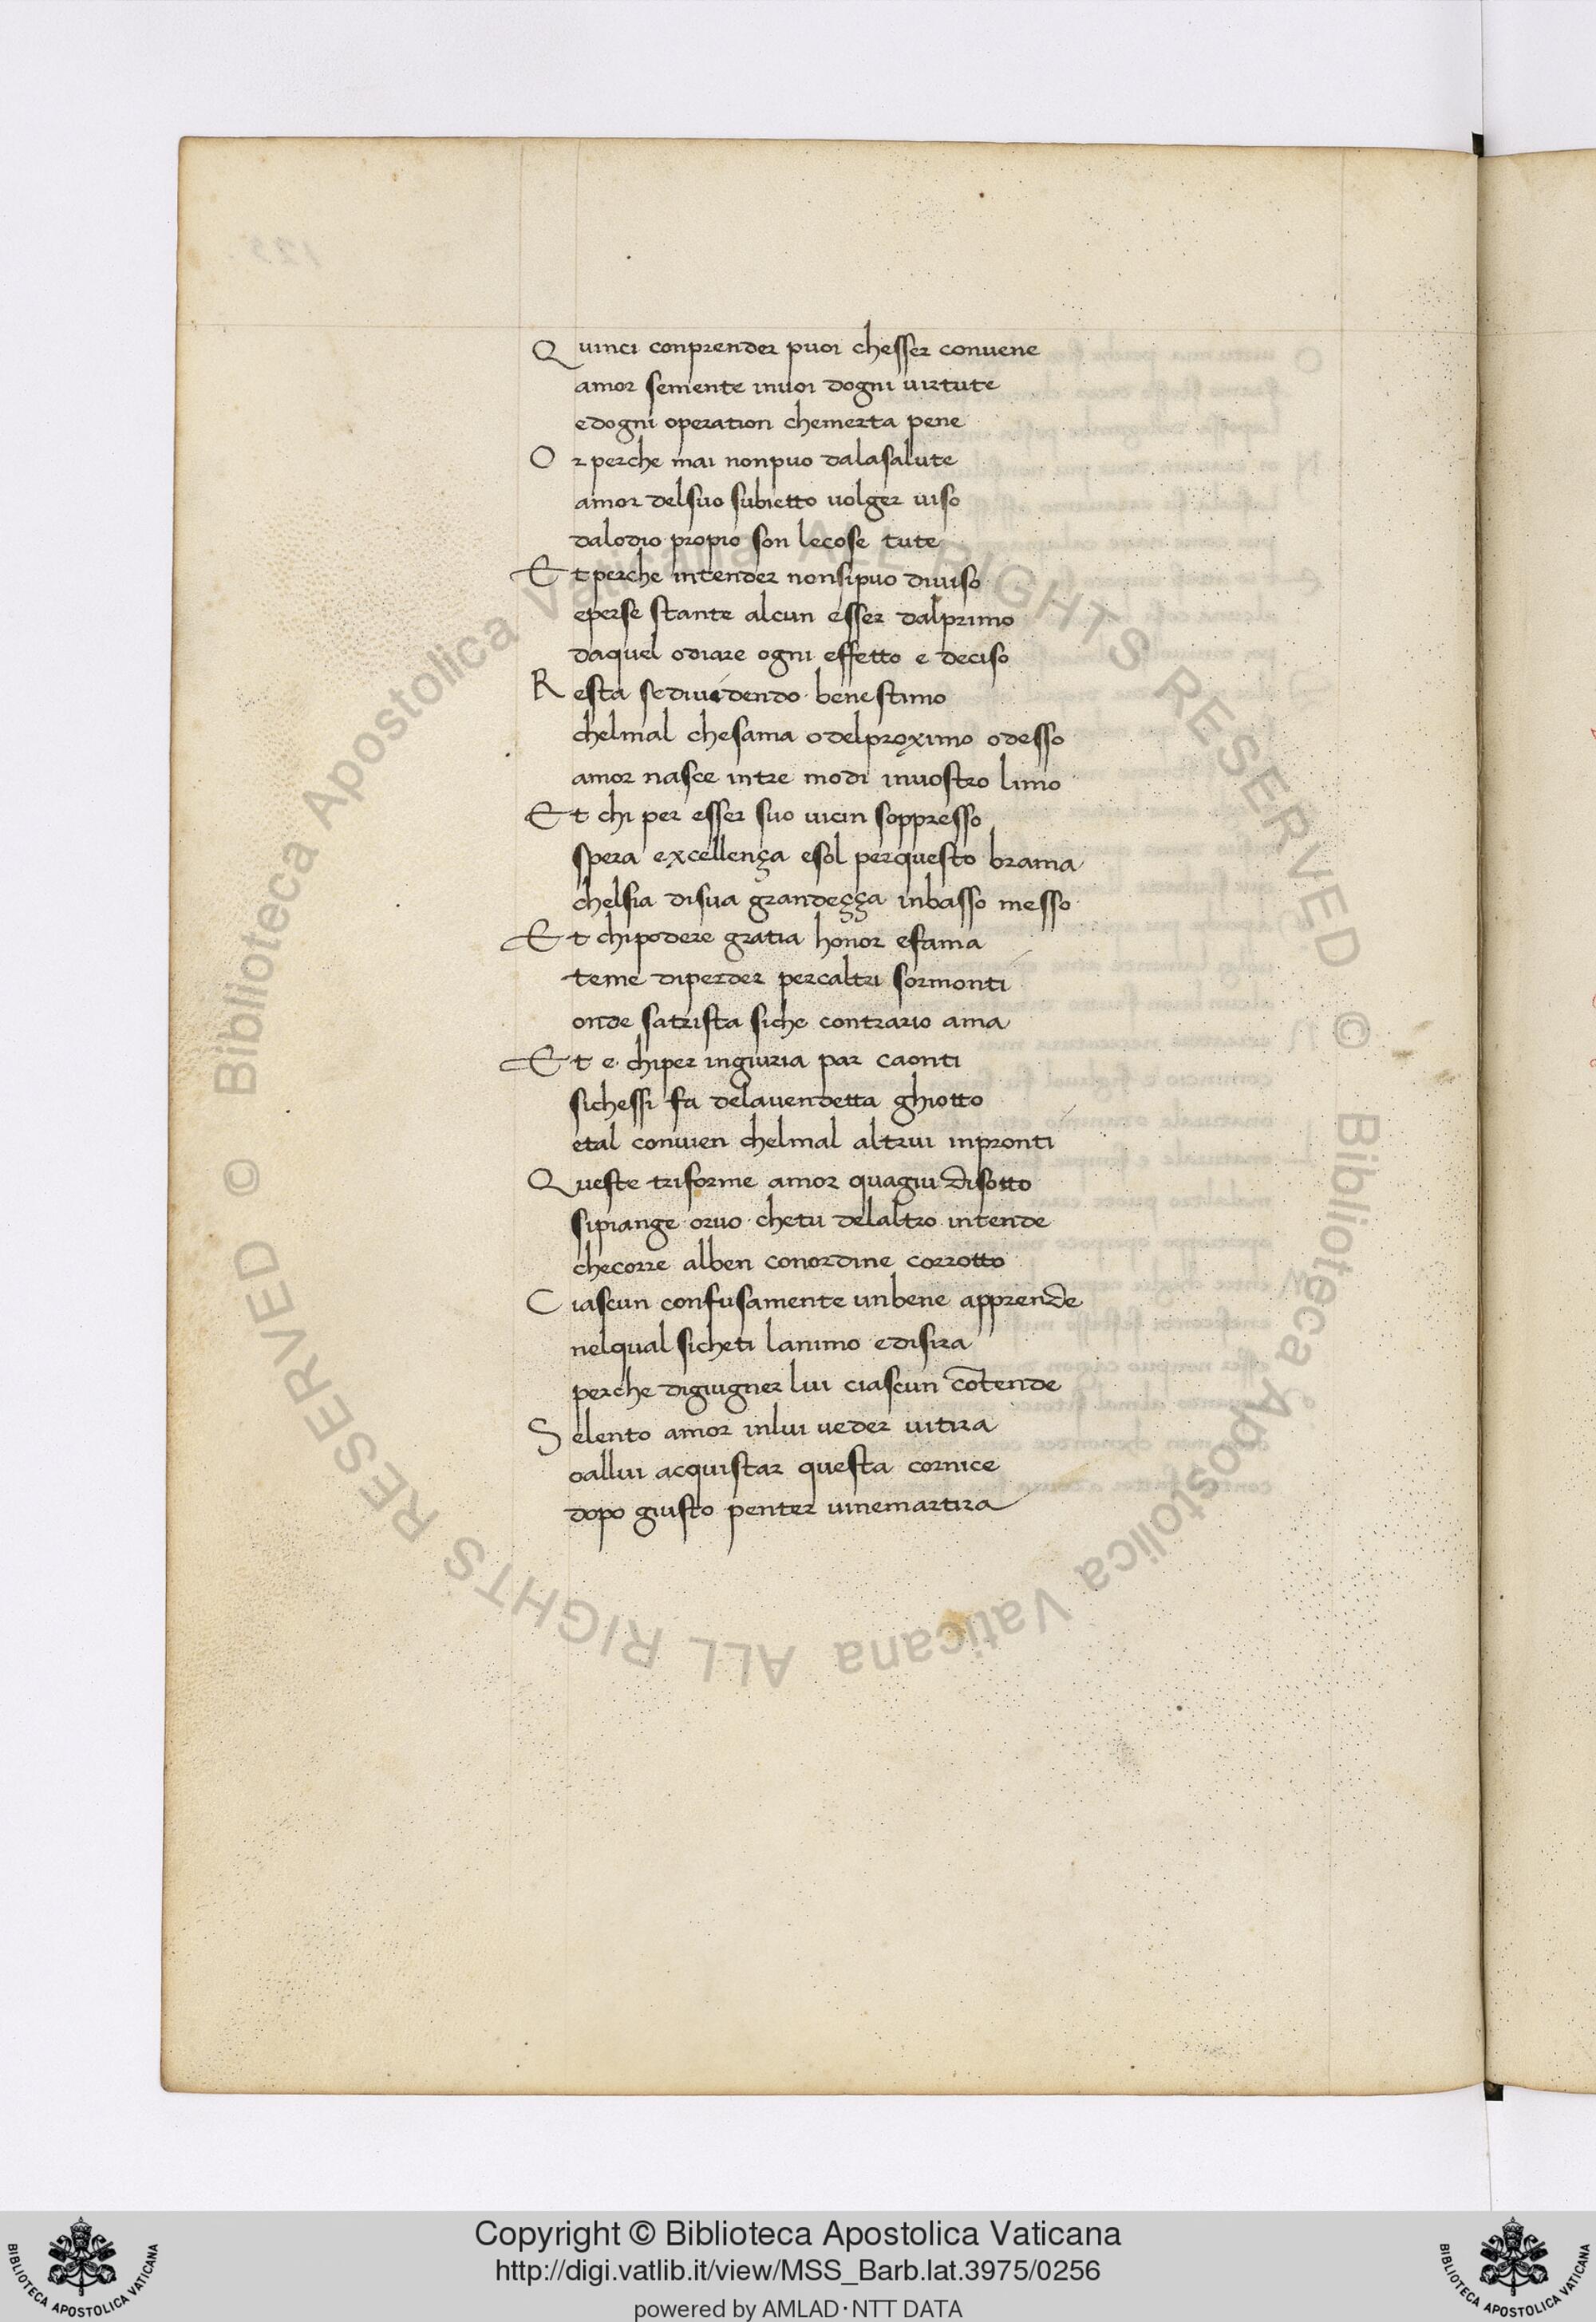 Quinci conprender puoi chesser convene
amor semente invoi dogni virtute
edogni operation chemerta pene
Or perche mai nonpuo dalasalute
amor delsuo subietto volger viso
dalodio propio son lecose tute
Et perche intender nonsipuo diviso
eperse stante alcun esser dalprimo
daquel odiare ogni effetto e deciso
Resta sedividendo benestimo
chelmal chesama odelproximo odesso
amor nasce intre modi invostro limo
Et chi per esser suo vicin soppresso
spera excellença esol perquesto brama
chelsia disua grandeçça inbasso messo
Et chipodere gratia honor efama
teme diperder percaltri sormonti
onde satrista siche contrario ama
Et e chiper ingiuria par caonti
sichessi fa delavendetta ghiotto
etal convien chelmal altrui inpronti
Queste triforme amor quagiu disotto
sipiange orvo chetu delaltro intende
checorre alben conordine corrotto
Ciascun confusamente unbene apprende
nelqual sicheti lanimo edisira
perche digiugner lui ciascun cōtende
Selento amor inlui veder vitira
oallui acquistar questa cornice
dopo giusto penter vinemartira
Copyright © Biblioteca Apostolica Vaticana
http://digi.vatlib.it/view/MSS_Barb.lat.3975/0256
powered by AMLAD･NTT DATA
BIBLIOTECA APOSTOLICA VATICANA
BIBLIOTECA APOSTOLICA VATICANA
© Biblioteca Apostolica Vaticana ALL RIGHTS RESERVED © Biblioteca Apostolica Vaticana ALL RIGHTS RESERVED